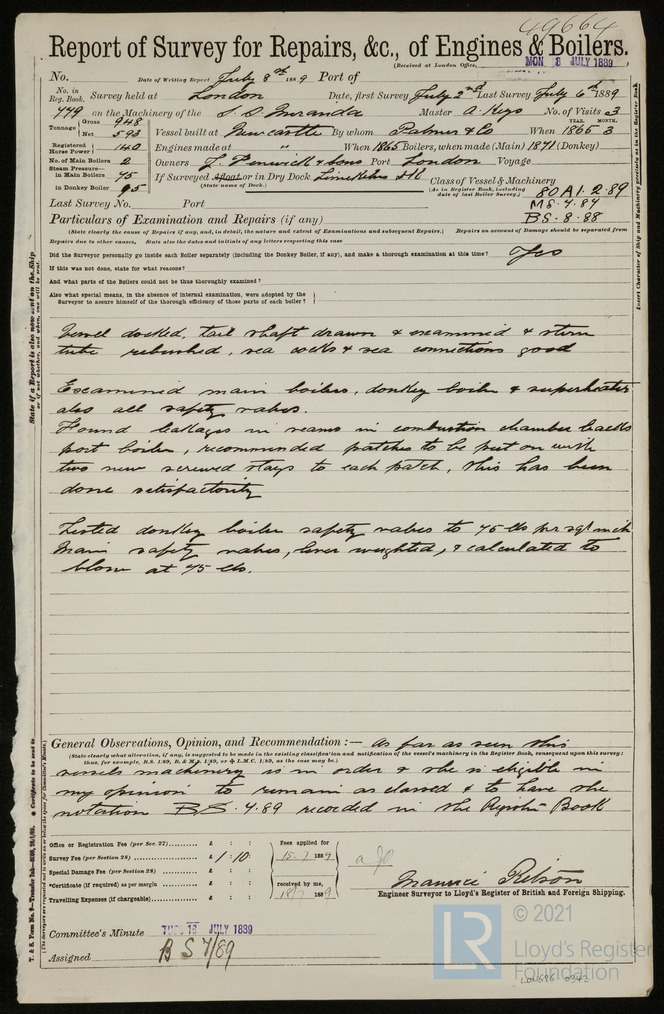 49664
Report of Survey for Repairs, &c., of Engines & Boilers.
(Received at London Office, MON 8 JULY 1889
No. Date of Writing Report July 8th 1889 Port of
No. in Reg. Book. Survey held at London Date, first Survey July 2nd Last Survey July 6th 1889
779 on the Machinery of the S.S. Miranda Master A. Keys No. of Visits 3
Tonnage Gross 948 Net 593 Vessel built at Newcastle By whom Palmer & Co When YEAR. MONTH. 1865 3
Registered Horse Power 140 Engines made at " When 1865 Boilers, when made (Main) 1871 (Donkey)
No. of Main Boilers 2 Owners J. Fenwick & Sons Port London Voyage
Steam Pressure— in Main Boilers 45 If Surveyed Afloat or in Dry Dock Limekilns
(State name of Dock.)
in Donkey Boiler 45
Class of Vessel & Machinery (As in Register Book, including date of last Boiler Survey.) 80 A1. 2.89
Last Survey No. Port MS. 4.84
BS. 8.88
Particulars of Examination and Repairs (if any)
(State clearly the cause of Repairs if any, and, in detail, the nature and extent of Examinations and subsequent Repairs.) Repairs on account of Damage should be separated from
Repairs due to other causes. State also the dates and initials of any letters respecting this case
Did the Surveyor personally go inside each Boiler separately (including the Donkey Boiler, if any), and make a thorough examination at this time? Yes
If this was not done, state for what reasons?
And what parts of the Boilers could not be thus thoroughly examined?
Also what special means, in the absence of internal examination, were adopted by the
Surveyor to assure himself of the thorough efficiency of those parts of each boiler?
Vessel docked, tail shaft drawn & examined & stern
tube rebushed, sea cocks & sea connections good
Examined main boilers, donkey boiler & superheater
also all safety valves.
Found leakages in seams in combustion chamber backs
port boiler, recommended patches to be put on with
two new screwed stays to each patch, this has been
done satisfactorily
Tested donkey boiler safety valves to 45 lbs per sq inch
Main safety valves, lever weighted, & calculated to
blow at 45 lbs.
General Observations, Opinion, and Recommendation :— As far as seen this
(State clearly what alteration, if any, is suggested to be made in the existing classification and notification of the vessel's machinery in the Register Book, consequent upon this survey:
thus, for example, B.S. 1/89, B. & M.S. 1/89, or L.M.C. 1/89, as the case may be.)
vessels machinery is in order & she is eligible in
my opinion to remain as classed & to have the
notation BS. 7.89 recorded in the Register Book
Office or Registration Fee (per Sec. 27) £ : :
Survey Fee (per Section 28) £ 1 : 10 :
Special Damage Fee (per Section 28) £ : :
*Certificate (if required) as per margin £ : :
Travelling Expenses (if chargeable) £ : :
Fees applied for
15.7.1889.
received by me,
18/7 1889
Maurice Ritson
Engineer Surveyor to Lloyd's Register of British and Foreign Shipping.
Committee's Minute TUES 16 JULY 1889
Assigned BS 7/89
State if a Report is also now sent on the Ship
or if not, whether, and when, one will be sent.
Insert Character of Ship and Machinery precisely as in the Register Book.
LR
© 2021
Lloyd's Register
Foundation
LON696-0342